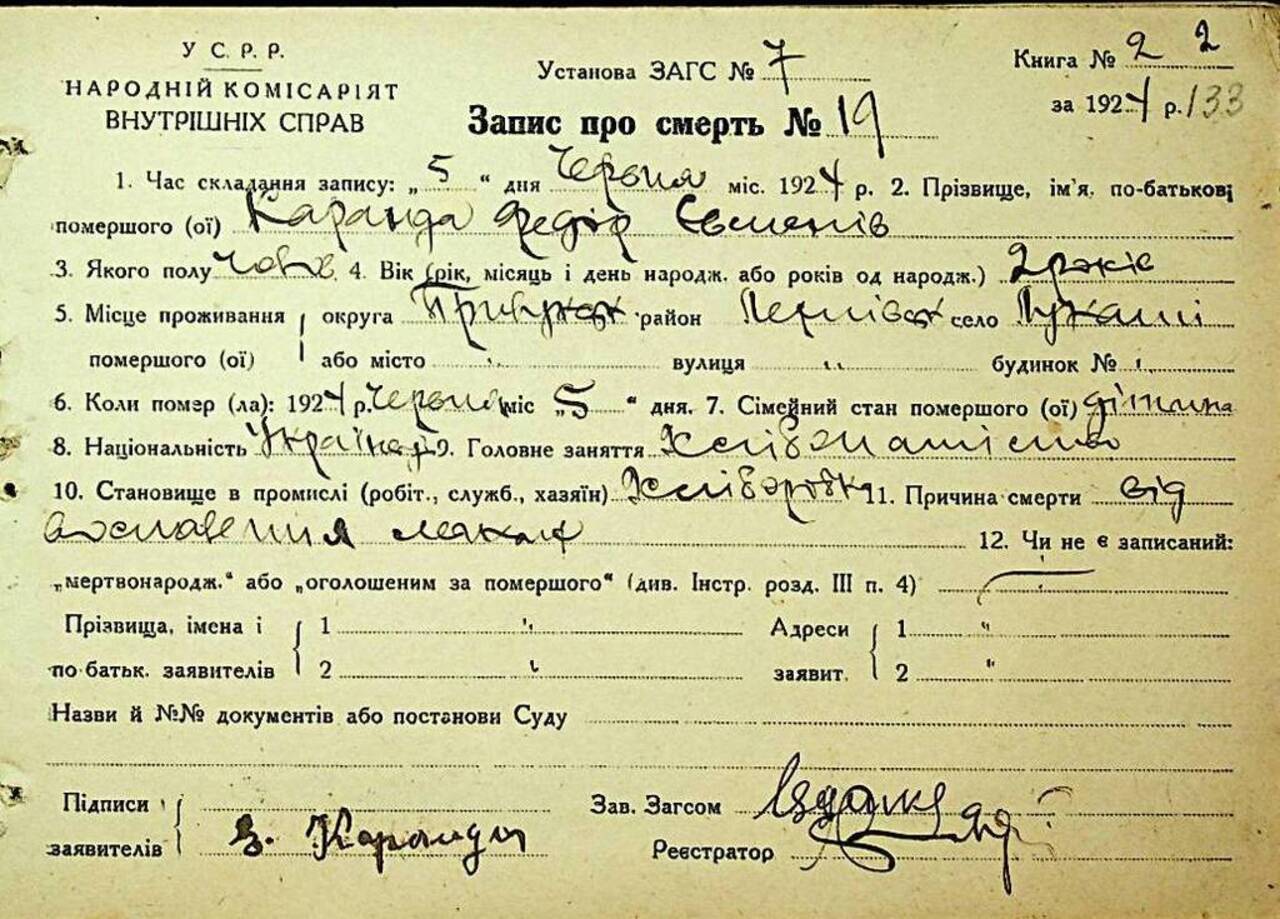 У С. Р. Р.
НАРОДНІЙ КОМІСАРІЯТ
ВНУТРІШНІХ СПРАВ
Установа ЗАГС № 7
Запис про смерть № 19
Книга № 2 2
за 1924 р. 133
1. Час складання запису: „ 5 “ дня Червня міс. 1924 р. 2. Прізвище, ім'я, по-батькові
помершого (ої) Каранда Федір Євменів
3. Якого полу Чолов 4. Вік (рік, місяць і день народж. або років од народж.) 2 років
5. Місце проживання округа район село
помершого (ої) або місто „ вулиця „ будинок №
6. Коли помер (ла): 1924 р. Червня міс „ 5 “ дня. 7. Сімейний стан помершого (ої) дитина
8. Національність Україн 9. Головне заняття
10. Становище в промислі (робіт., служб., хазяїн) 11. Причина смерти від
12. Чи не є записаний:
„мертвонародж.“ або „оголошеним за помершого“ (див. Інстр. розд. III п. 4)
Прізвища, імена і 1 „ Адреси 1 „
по батьк. заявителів 2 „ заявит. 2 „
Назви й №№ документів або постанови Суду
Підписи Зав. Загсом
заявителів Каранда Реєстратор